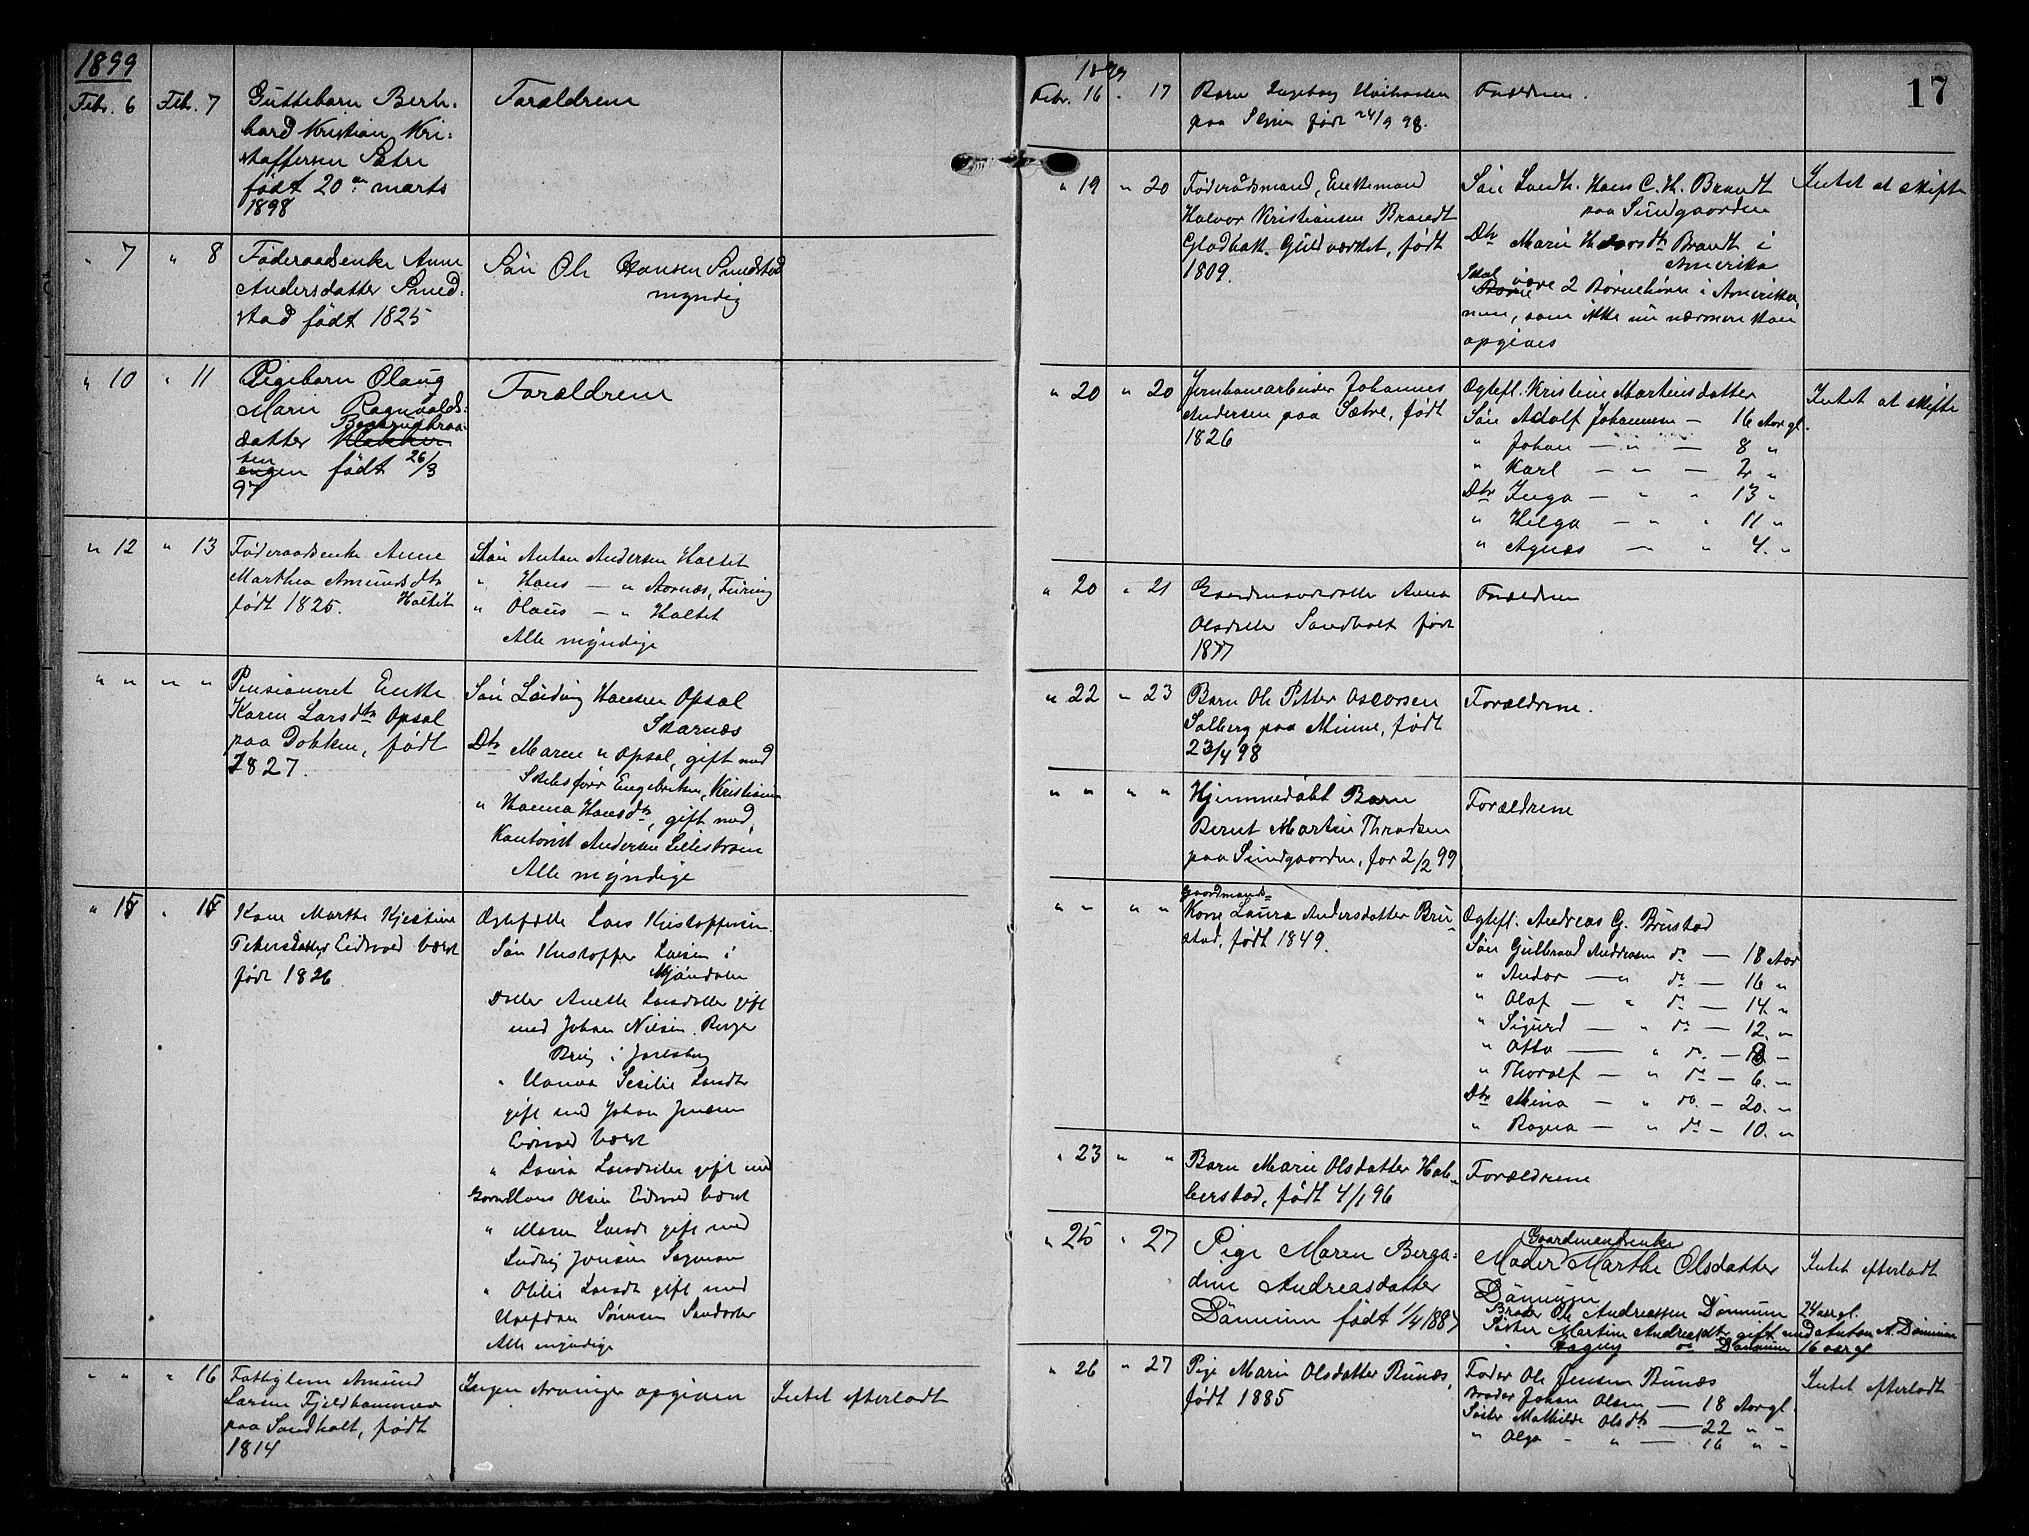 1899
Febr. 6 Febr. 7 Guttebarn Bern-
hard Kristian Kri-
stoffersen Sætre
født 20de marts
1898
Forældrene
" 7 " 8 Føderaadsenke Anne
Andersdatter Smed-
stad født 1825
Søn Ole Hansen Smedstad
myndig
" 10 " 11 Pigebarn Olaug
Marie Ragnvalds-
datter
født 26/3
97
Forældrene
" 12 " 13 Føderaadsenke Anne
Marthea Amundsdtr
født 1825. Holtet
Søn Anton Andersen Holtet
" Hans — " Aarnæs, Furing
" Olaus — " Holtet
Alle myndige
" " " " Pensioneret Enke
Karen Larsdtr Opsal
paa Dokken, født
1827.
Søn Ludvig Hansen Opsal
Skarnæs
Dtr Maren " Opsal, gift med
Skibsfører Engebretsen, Kristiania
" Hanna Hansdtr, gift med
Kontorist Andersen Lillestrøm
Alle myndige
" 15 " 15 Kone Marthe Kjestine
Petersdatter Eidsvold Værk
født 1826
Ægtefælle Lars Kristoffersen.
Søn Kristoffer Larsen i
Mjøndalen
Datter Anette Larsdatter gift
med Johan Nilsen
i Jarlsberg
" Hanna Secilie Larsdtr
gift med Johan Jensen
Eidsvold Værk
" Lovisa Larsdatter gift med
Hans Olsen Eidsvold Værk
" Maren Larsdt gift med
Ludvig Jonsen Sagmoen
" Otilie Larsdt gift med
Halfdan Sørensen
Alle myndige
" " " 16 Fattiglem Amund
Larsen Fjeldhammer
paa Sandholt, født
1814
Ingen Arvinger opgiven
Intet efterladt
17
1899
Febr. 16 " 17 Barn Ingeborg
paa født 24/9 98.
Forældrene.
" 19 " 20 Føderaadsmand, Enkemand
Halvor Kristiansen Brandt
Gladbakk. Guldværket, født
1809.
Søn Landh. Hans C. H. Brandt
paa Sundgaarden
Dtr Marie Halvorsdtr Brandt i
Amerika
Skal være 2 Børnebørn i Amerika,
men, som ikke nu nærmere kan
opgives
Intet at skifte
" 20 " 20 Jernbanearbeider Johannes
Andersen paa Sætre, født
1826
Ægtefl. Kristine Martinsdatter
Søn Adolf Johannesen — 16 Aar gl.
" Johan — " — 8 "
" Karl — " — 2 "
Dtr Inga — " " 13 "
" Helga — " " 11 "
" Agnes — " " 4. "
Intet at skifte
" 20 " 21 Gaardmandsdatter Anna
Olsdatter Sandholt født
1877
Forældrene
" 22 " 23 Barn Ole Petter Oscarsen
Solberg paa Minne, født
23/4 98
Forældrene.
" " " " Hjemmedøbt Barn
Bernt Martin Throndsen
paa Sundgaarden, før 2/2 99
Forældrene
" " " " Gaardmands-
Kone Laura Andersdatter Bru-
stad, født 1849.
Ægtefl. Andreas G. Brustad
Søn Gulbrand Andreasen do — 18 Aar
" Andor — " do — 16 "
" Olaf — " do — 14 "
" Sigurd — " do — 12 "
" Otto — " do — 8 "
" Thoralf — " do — 6. "
Dtr Mina — " do. — 20. "
" Ragna — " do — 10. "
" 23 " " Barn Marie Olsdatter Hab-
berstad, født 4/1 96
Forældrene
" 25 " 27 Pige Maren Berga-
dine Andreasdatter
Dønnum født 1/4 1887
Gaardmandsenke
Moder Marthe Olsdatter
Dønnum
Broder Ole Andreassen Dønnum 24 aar gl.
Søster Martine Andreasdtr gift med Anton A. Dønnum
" Dagny do Dønnum 16 aar gl.
Intet efterladt
" 26 " 27 Pige Marie Olsdatter Bunæs,
født 1885
Fader Ole Jensen Bunæs
Broder Johan Olsen — 18 Aar gl.
Søster Mathilde Olsdtr — 22 " "
" Olga — " — 16 " "
Intet efterladt